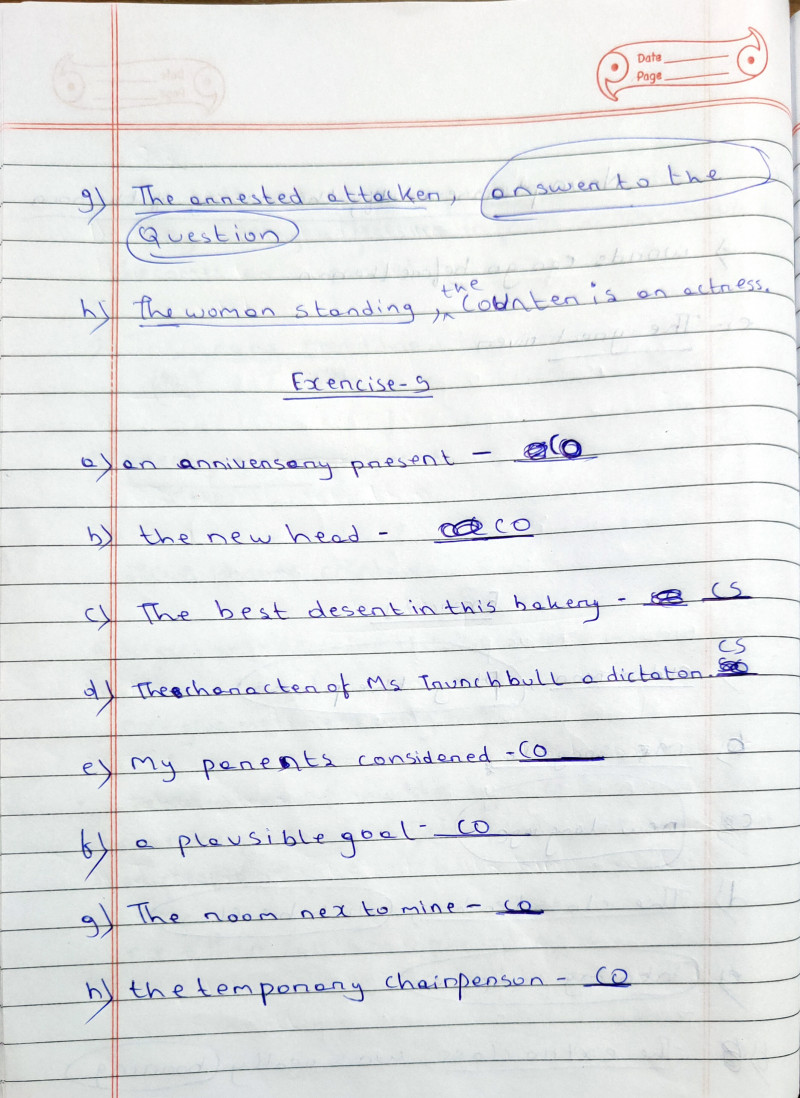 Date
Page
g) The arrested attacker, answer to the
Question
h) The woman standing, the Counter is an actress.
Exercise-9
a) an anniversary present - CO
b) the new head - CO
c) The best desert in this bakery - CS
d) The character of Ms Trunchbull a dictator. CS
e) My parents considered - CO
f) a plausible goal - CO
g) The room nex to mine - CO
h) the temporary chairperson - CO